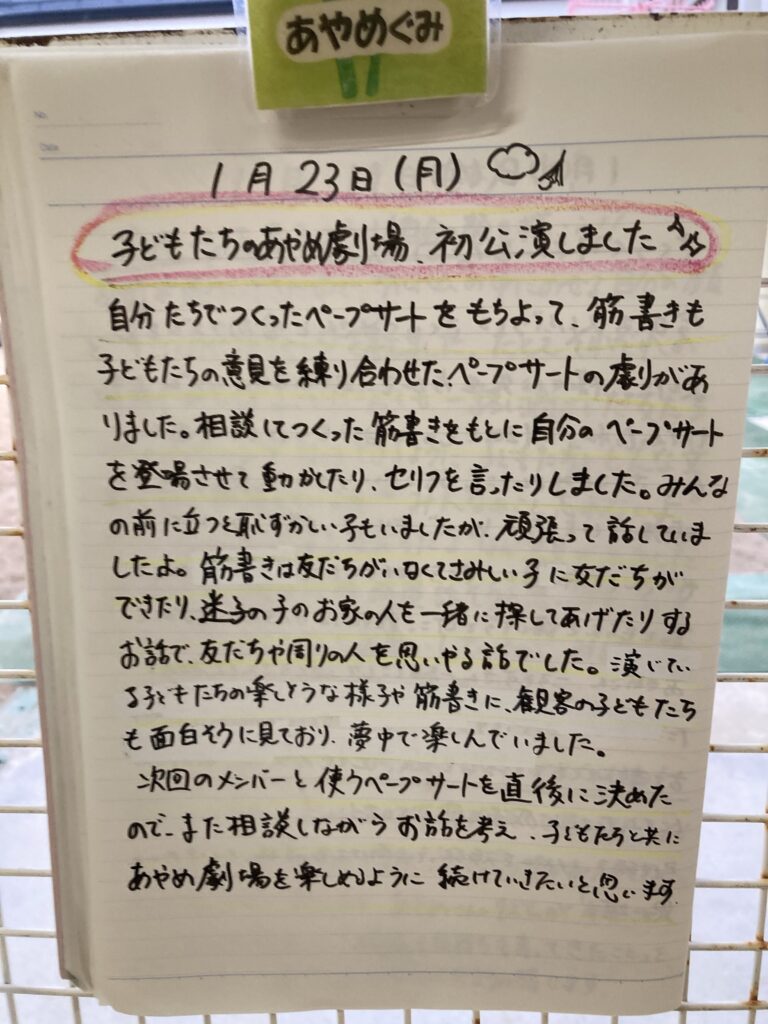 あやめぐみ
No.
Date
1月23日(月)
子どもたちのあやめ劇場、初公演しました
自分たちでつくったペープサートをもちよって、筋書きも
子どもたちの意見を練り合わせた、ペープサートの劇があ
りました。相談してつくった筋書きをもとに自分のペープサート
を登場させて動かしたり、セリフを言ったりしました。みんな
の前に立つと恥ずかしい子もいましたが、頑張って話していま
したよ。筋書きは友だちがいなくてさみしい子に友だちが
できたり、迷子の子のお家の人を一緒に探してあげたりする
お話で、友だちや周りの人を思いやる話でした。演じてい
る子どもたちの楽しそうな様子や筋書きに、観客の子どもたち
も面白そうに見ており、夢中で楽しんでいました。
次回のメンバーと使うペープサートを直後に決めた
ので、また相談しながらお話を考え、子どもたちと共に
あやめ劇場を楽しめるように続けていきたいと思います。